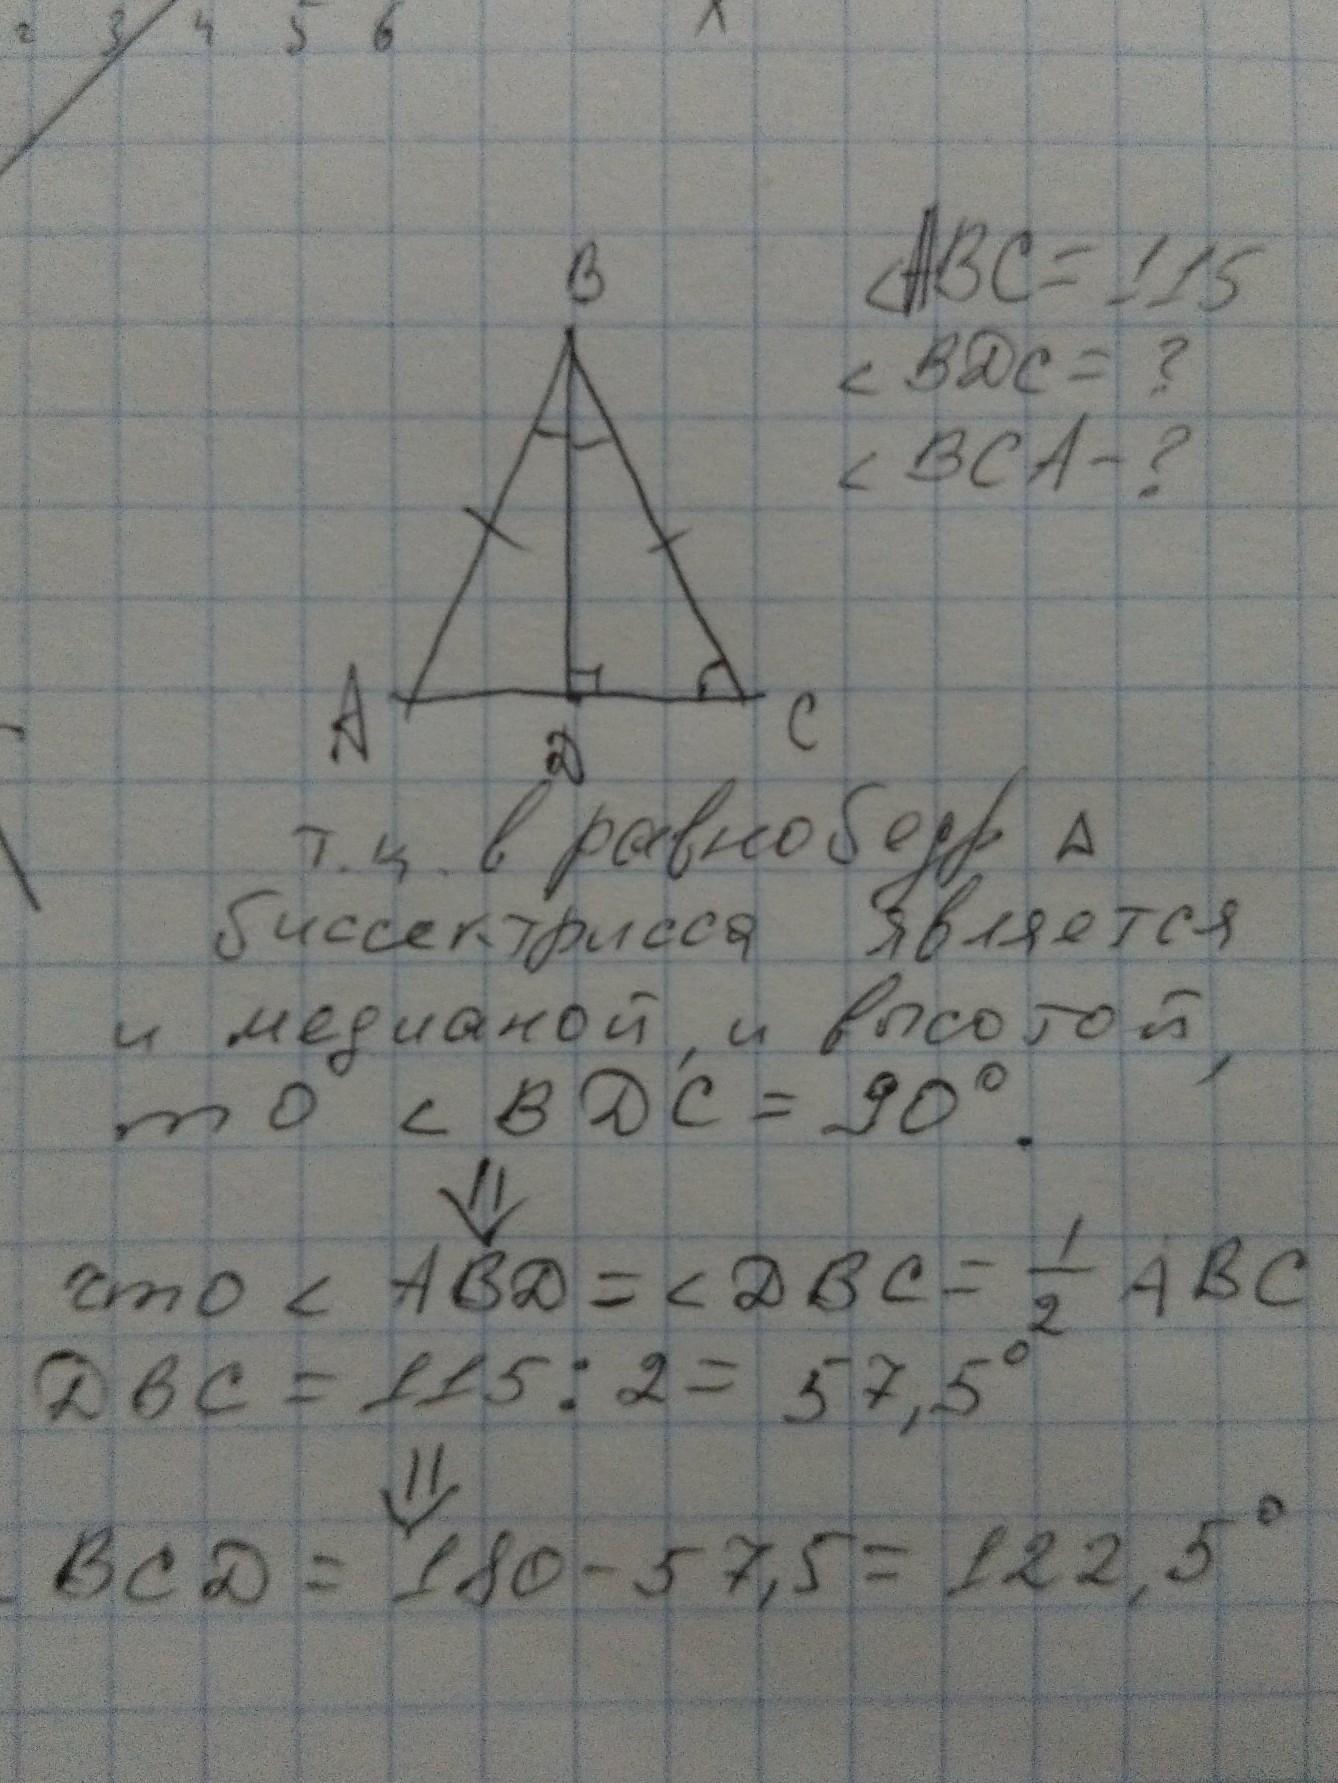 2 3 4 5 6
B
<ABC = 115
< BDC = ?
< BCA - ?
A
D
C
т.ц. в равнобедр Δ
биссектрисса является
и медианой, и высотой,
то < BDC = 90°.
⇓
что < ABD = < DBC = 1/2 ABC
DBC = 115 : 2 = 57,5°
⇓
BCD = 180 - 57,5 = 122,5°